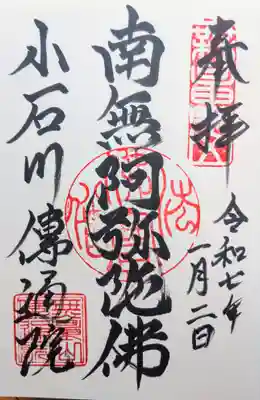 奉拝
令和七年
一月二日
南無阿弥陀佛
小石川傳通院